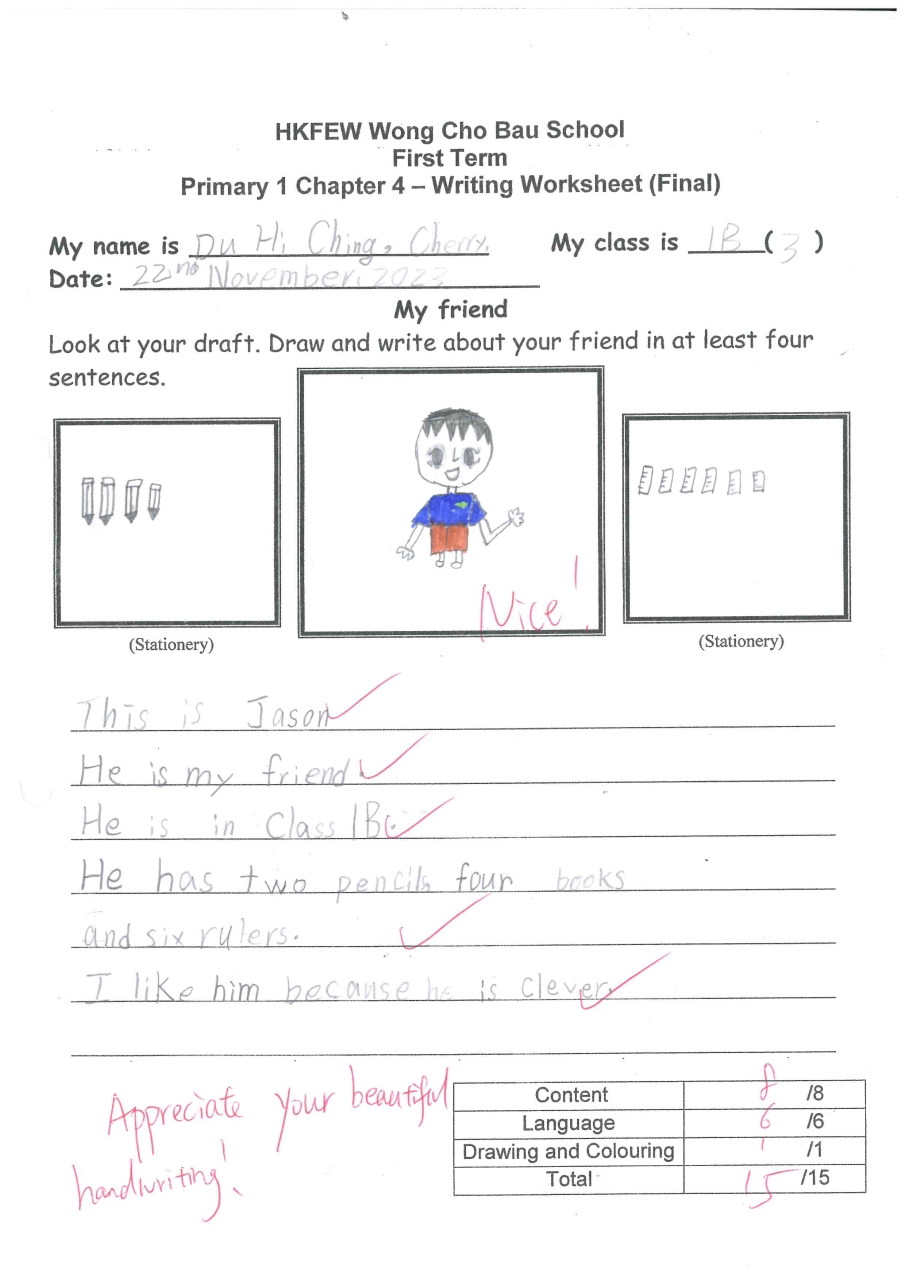 HKFEW Wong Cho Bau School
First Term
Primary 1 Chapter 4 – Writing Worksheet (Final)
My name is Du Hi Ching, Cherry. My class is 1B ( 3 )
Date: 22nd November, 2023
My friend
Look at your draft. Draw and write about your friend in at least four
sentences.
Nice!
(Stationery)
(Stationery)
This is Jason
He is my friend
He is in Class 1B.
He has two pencils four books
and six rulers.
I like him because he is clever.
Appreciate your beautiful
handwriting!
Content 8 /8
Language 6 /6
Drawing and Colouring 1 /1
Total 15 /15